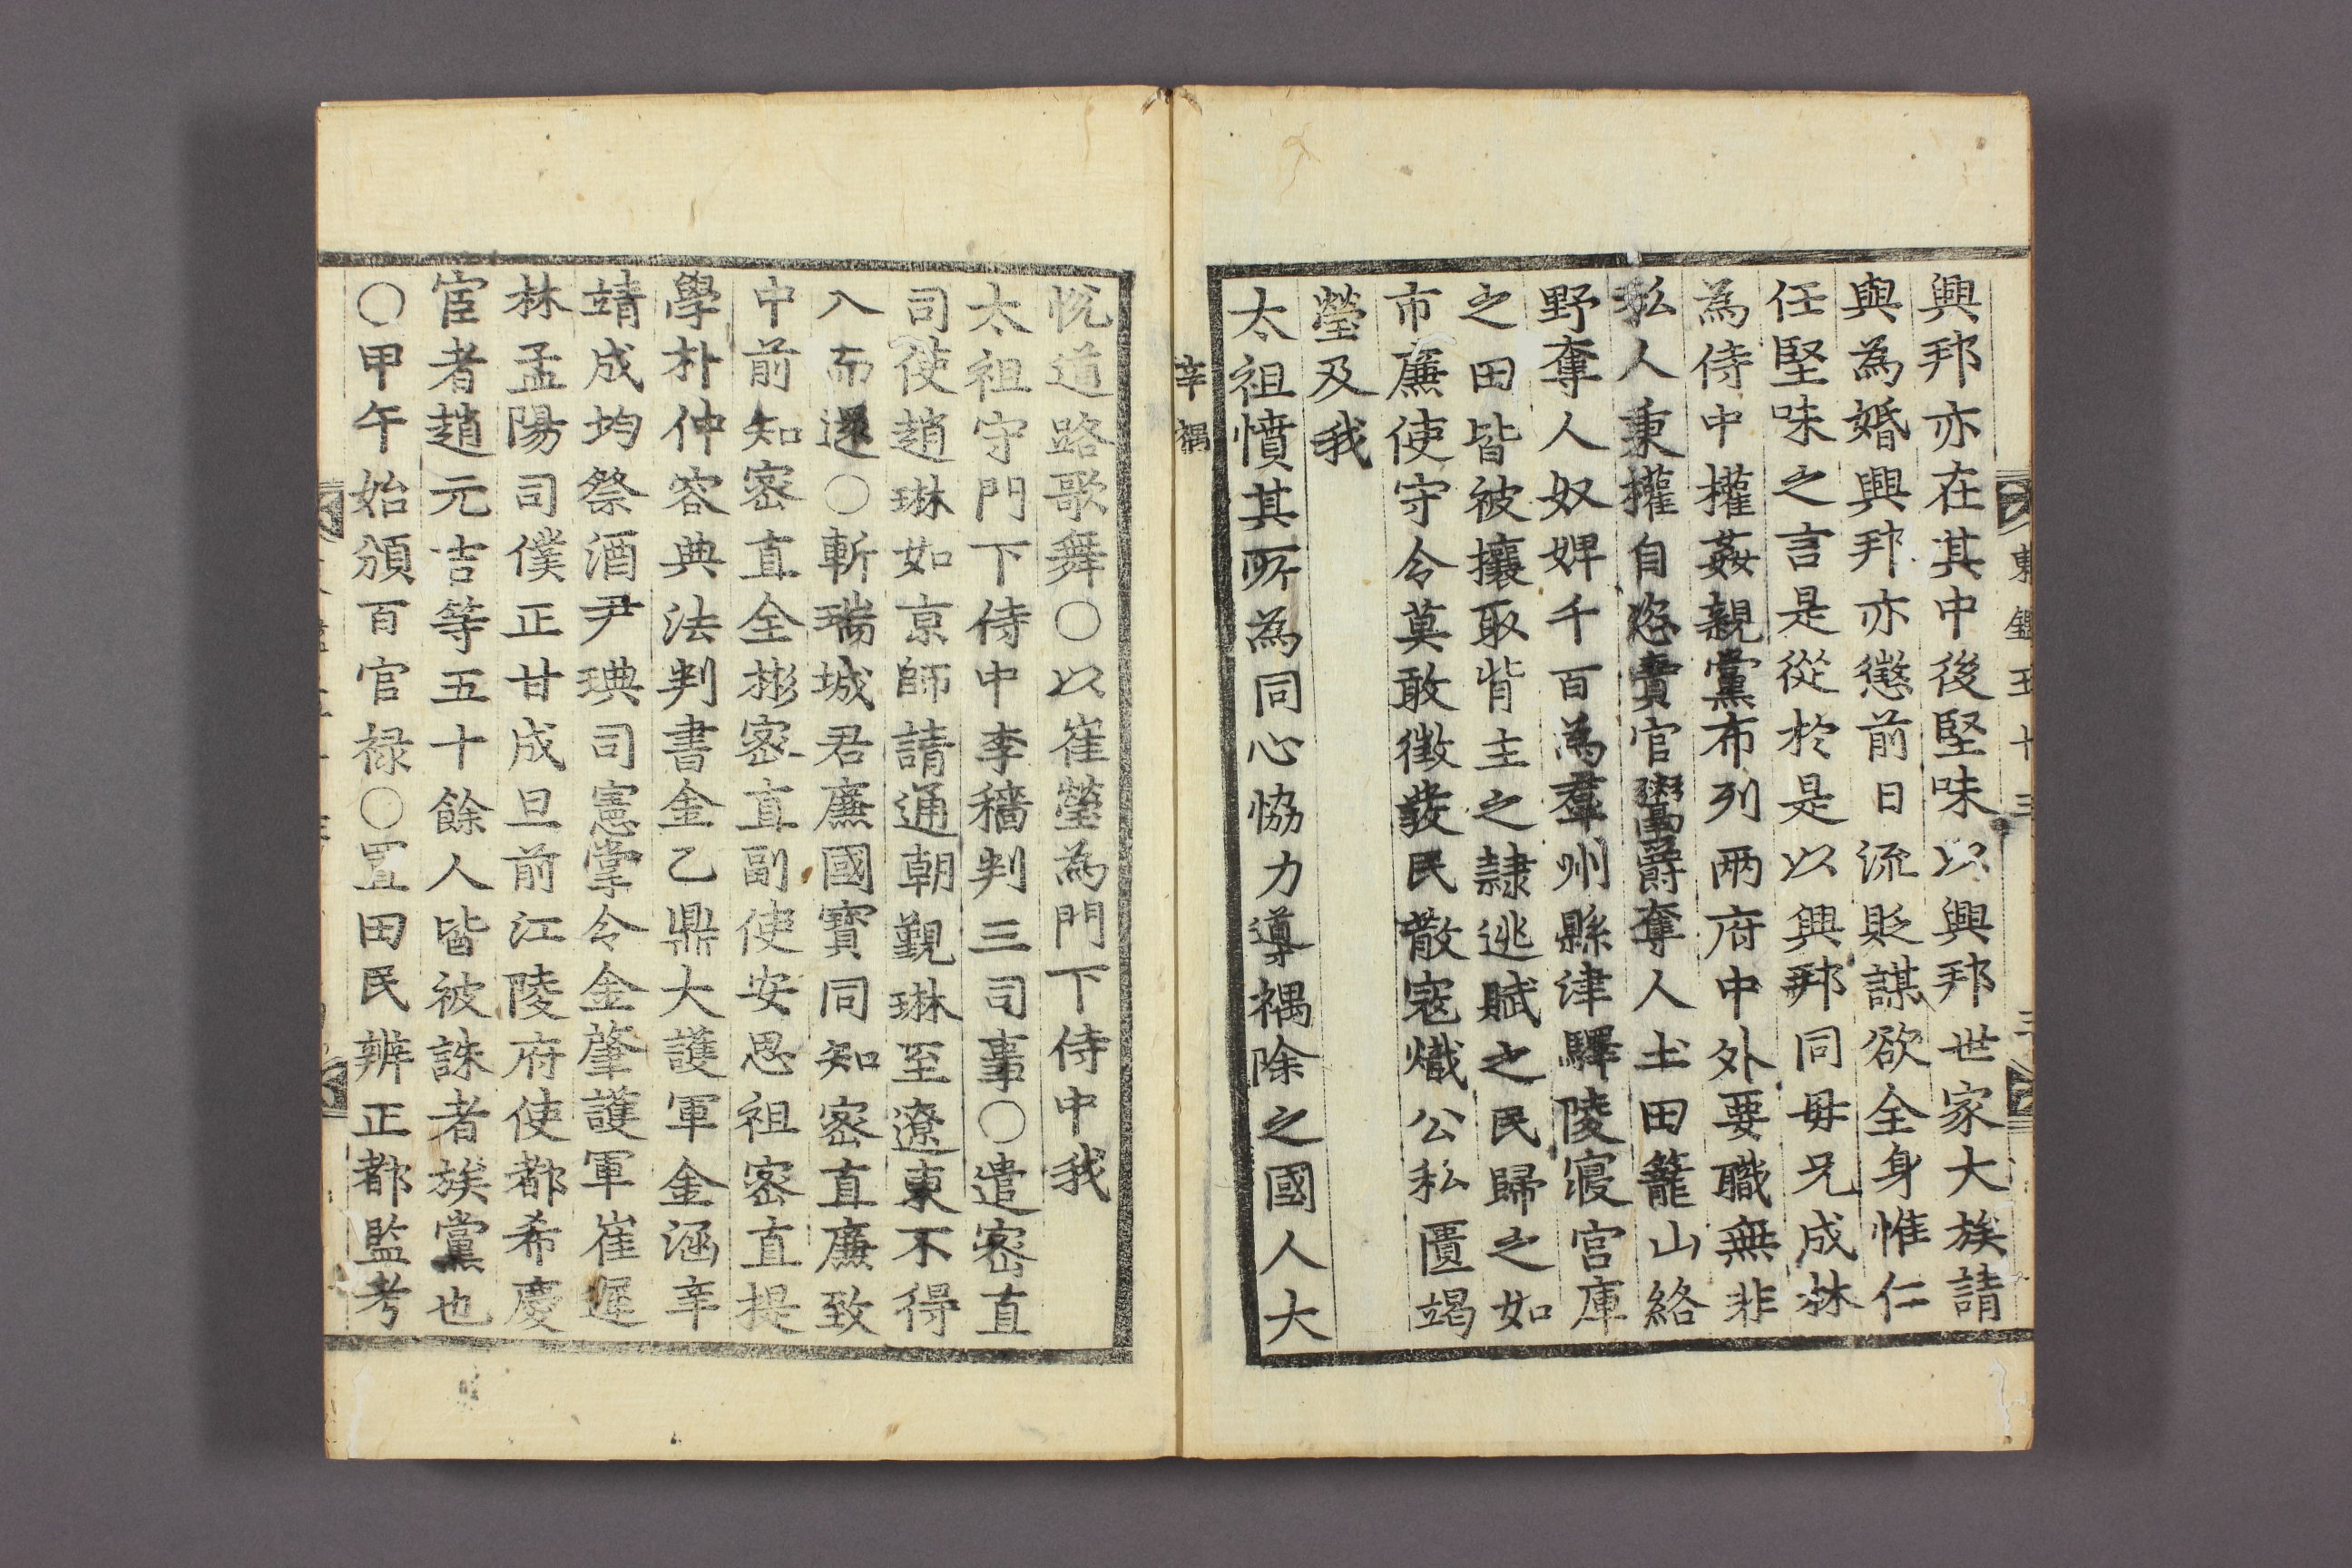 東鑑五十三 三
興邦亦在其中後堅味以興邦世家大族請
與為婚興邦亦懲前日流貶謀欲全身惟仁
任堅味之言是從於是以興邦同母兄成林
為侍中權姦親黨布列兩府中外要職無非
私人秉權自恣賣官鬻爵奪人土田籠山絡
野奪人奴婢千百為羣州縣津驛陵寢宮庫
之田皆被攘取背主之隷逃賦之民歸之如
市廉使守令莫敢徵發民散寇熾公私匱竭
瑩及我
太祖憤其所為同心恊力導禑除之國人大
辛禑
悅道路歌舞○以崔瑩為門下侍中我
太祖守門下侍中李穡判三司事○遣密直
司使趙琳如京師請通朝覲琳至遼東不得
入而還○斬瑞城君廉國寶同知密直廉致
中前知密直全彬密直副使安思祖密直提
學朴仲容典法判書金乙鼎大護軍金涵辛
靖成均祭酒尹琠司憲掌令金肇護軍崔遲
林孟陽司僕正甘成旦前江陵府使都希慶
宦者趙元吉等五十餘人皆被誅者族黨也
○甲午始頒百官祿○置田民辨正都監考